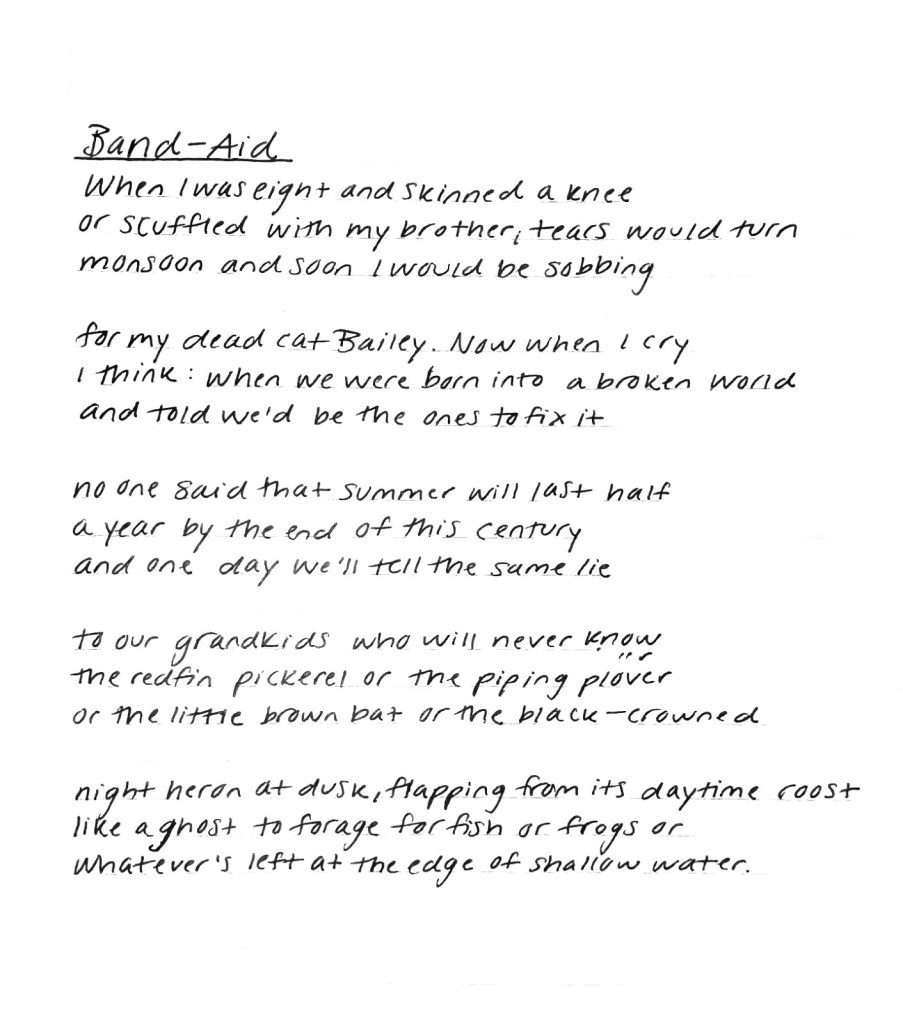 Band-Aid
When I was eight and skinned a knee
or scuffled with my brother, tears would turn
monsoon and soon I would be sobbing
for my dead cat Bailey. Now when I cry
I think: when we were born into a broken world
and told we'd be the ones to fix it
no one said that summer will last half
a year by the end of this century
and one day we'll tell the same lie
to our grandkids who will never know
the redfin pickerel or the piping plover
or the little brown bat or the black-crowned
night heron at dusk, flapping from its daytime roost
like a ghost to forage for fish or frogs or
whatever's left at the edge of shallow water.